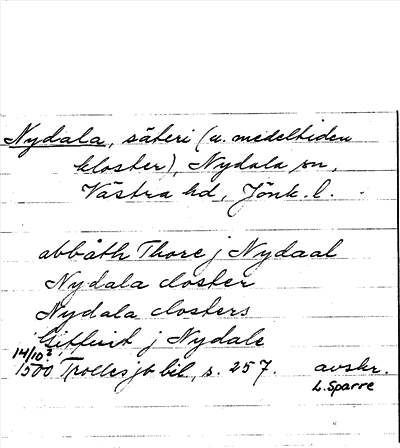 Nydala, säteri (u. medeltiden
kloster), Nydala sn,
Västra hd, Jönk. l.
abbåth Thore j Nydaal
Nydala closter
Nydala closters
Giffuit j Nydale
14/10
1500 Trolles jb bil, s. 257. avskr.
L. Sparre